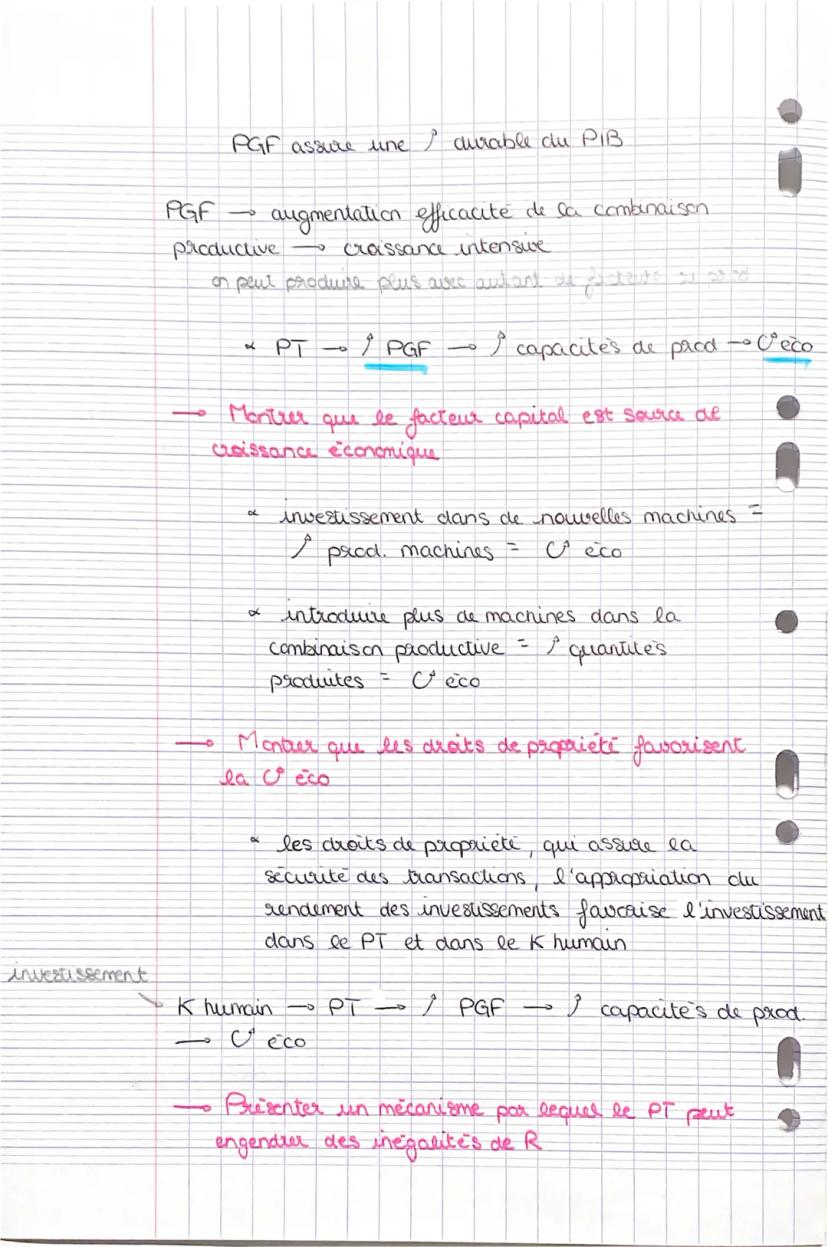 PGF assure une ↗ durable du PIB
PGF → augmentation efficacité de la combinaison
productive → croissance intensive
on peut produire plus avec autant de facteurs de prod
∝ PT → ↗ PGF → ↗ capacités de prod → C° éco
→ Montrer que le facteur capital est source de
croissance économique
∝ investissement dans de nouvelles machines =
↗ prod. machines = C° éco
∝ introduire plus de machines dans la
combinaison productive = ↗ quantités
produites = C° éco
→ Montrer que les droits de propriété favorisent
la C° éco
∝ les droits de propriété, qui assure la
sécurité des transactions, l'appropriation du
rendement des investissements favorise l'investissement
dans le PT et dans le K humain
investissement
K humain → PT → ↗ PGF → ↗ capacités de prod.
→ C° éco
→ Présenter un mécanisme par lequel le PT peut
engendrer des inégalités de R